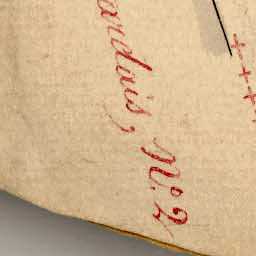 ardais, N.º 2